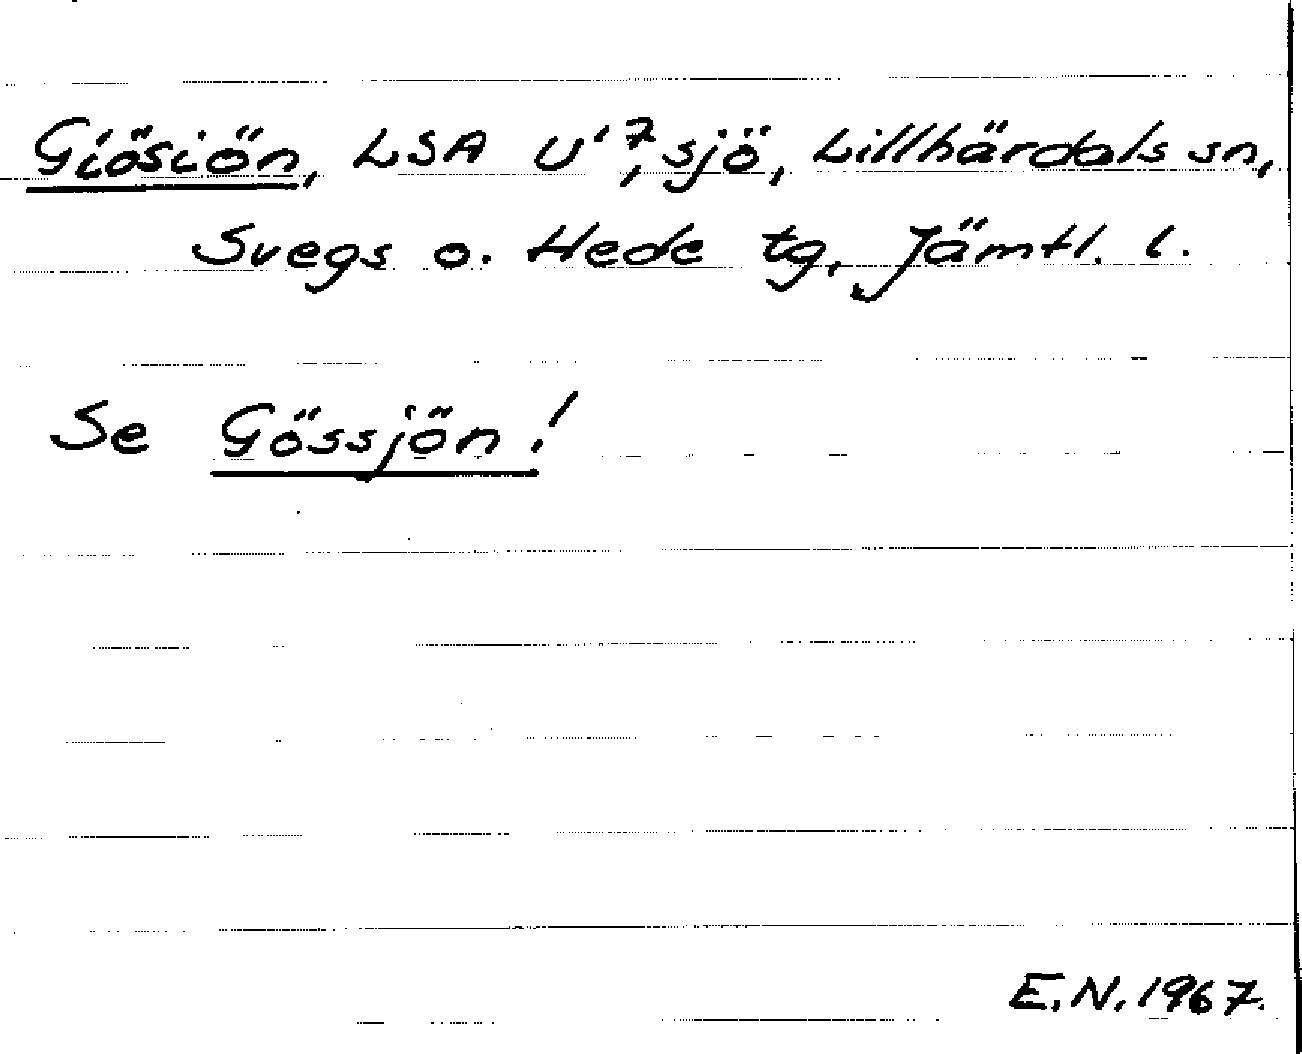 Giösiön, LSA U'7, sjö, Lillhärdals sn,
Svegs o. Hede tg, Jämtl. l.
Se Gössjön!
E.N. 1967.